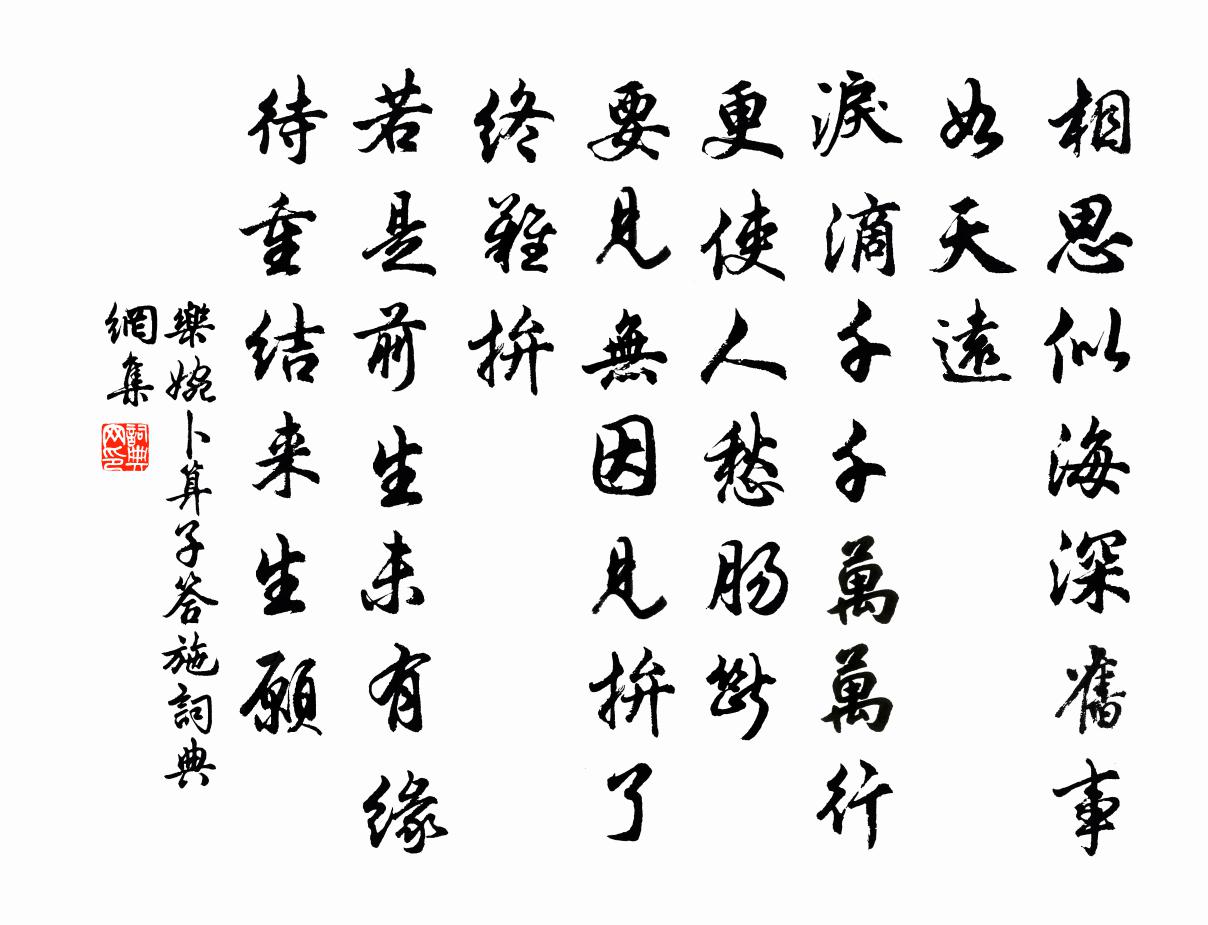 相思似海深舊事
如天遠
淚滴千千萬萬行
更使人愁腸斷
要見無因見拚了
終難拚
若是前生未有緣
待重结来生願
樂婉卜算子答施詞典
網集
詞典網印